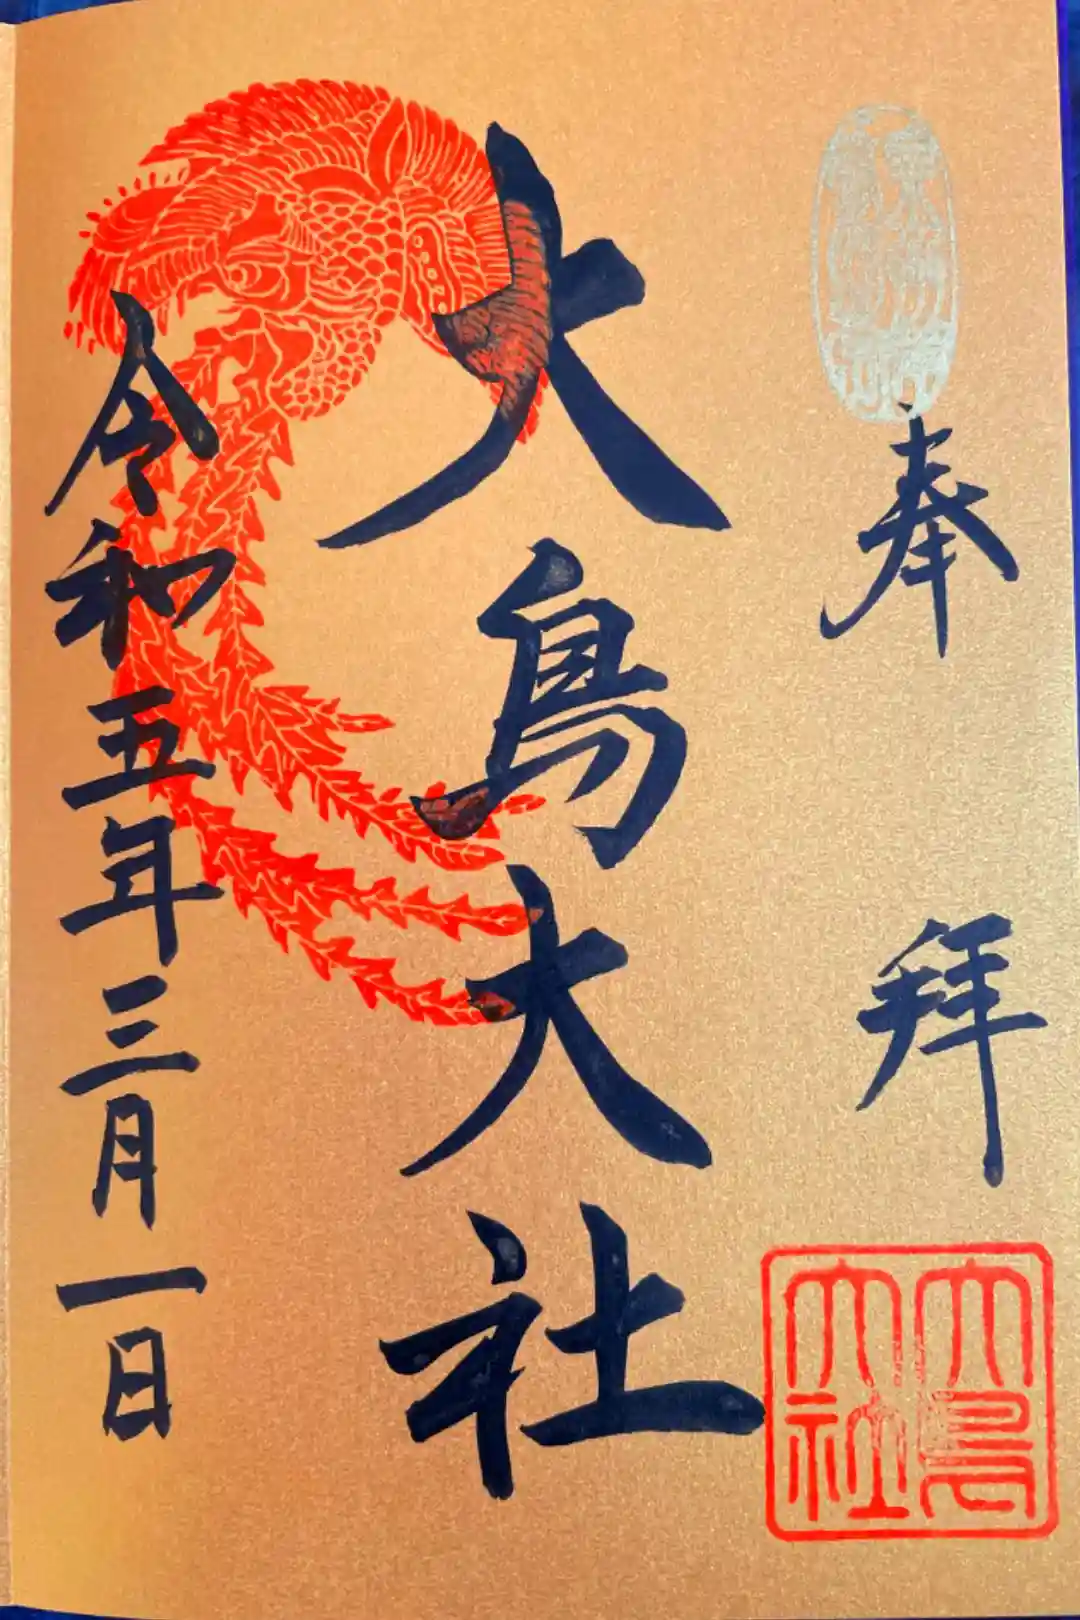 奉拝
大鳥大社
令和五年三月一日
大鳥
大社